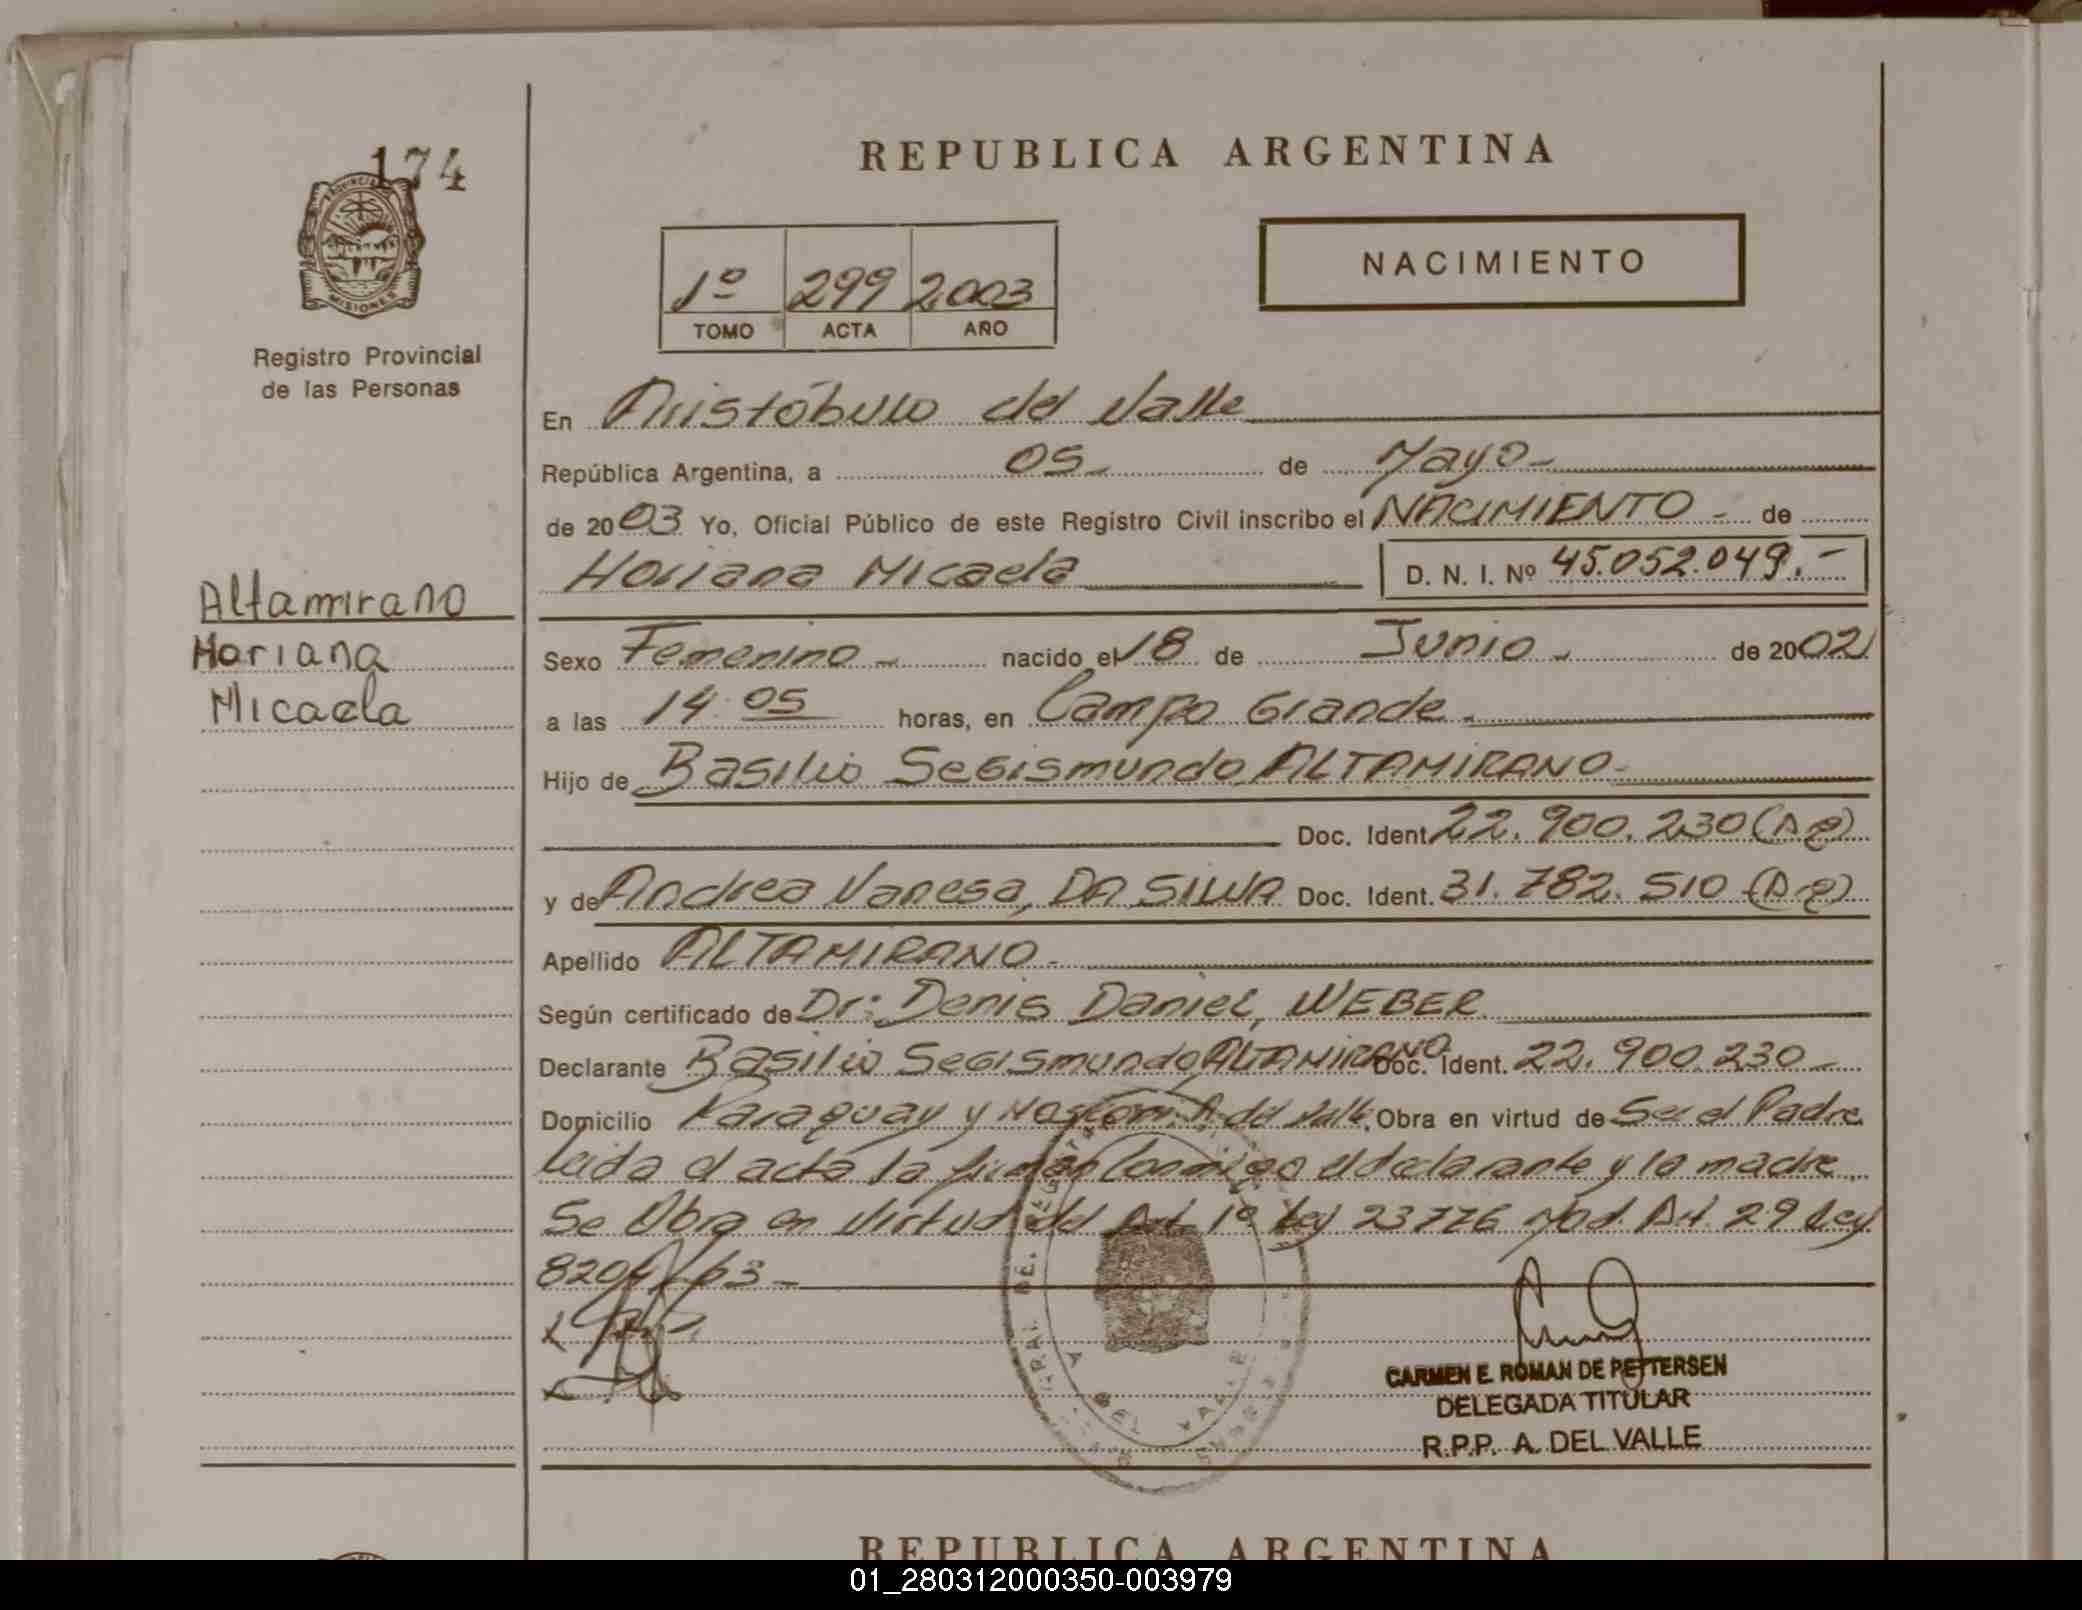 174
PROVINCIA
MISIONES
Registro Provincial
de las Personas
Altamirano
Moriana
Micaela
REPUBLICA ARGENTINA
1º 299 2003
TOMO ACTA AÑO
NACIMIENTO
En Aristóbulo del Valle
República Argentina, a 05 de Mayo
de 2003 Yo, Oficial Público de este Registro Civil inscribo el NACIMIENTO - de
Moriana Micaela D. N. I. Nº 45.052.049.-
Sexo Femenino - nacido el 18 de Junio - de 2002
a las 14:05 horas, en Campo Grande.
Hijo de Basilio Segismundo ALTAMIRANO-
Doc. Ident. 22.900.230 (Ag)
y de Andrea Vanesa, DA SILVA Doc. Ident. 31.782.510 (Ag)
Apellido ALTAMIRANO-
Según certificado de Dr: Denis Daniel, WEBER
Declarante Basilio Segismundo, ALTAMIRANO Doc. Ident. 22.900.230-
Domicilio Paraguay y A. del Valle. Obra en virtud de Ser el Padre
Leida el acta la firman conmigo el declarante y la madre
Se Obra en Virtud del Art. 1º Ley 23776 Mod. Art. 29 Ley
8204/63-
DEL VALLE
CARMEN E. ROMAN DE PETTERSEN
DELEGADA TITULAR
R.P.P. A. DEL VALLE
REPUBLICA ARGENTINA
01_280312000350-003979